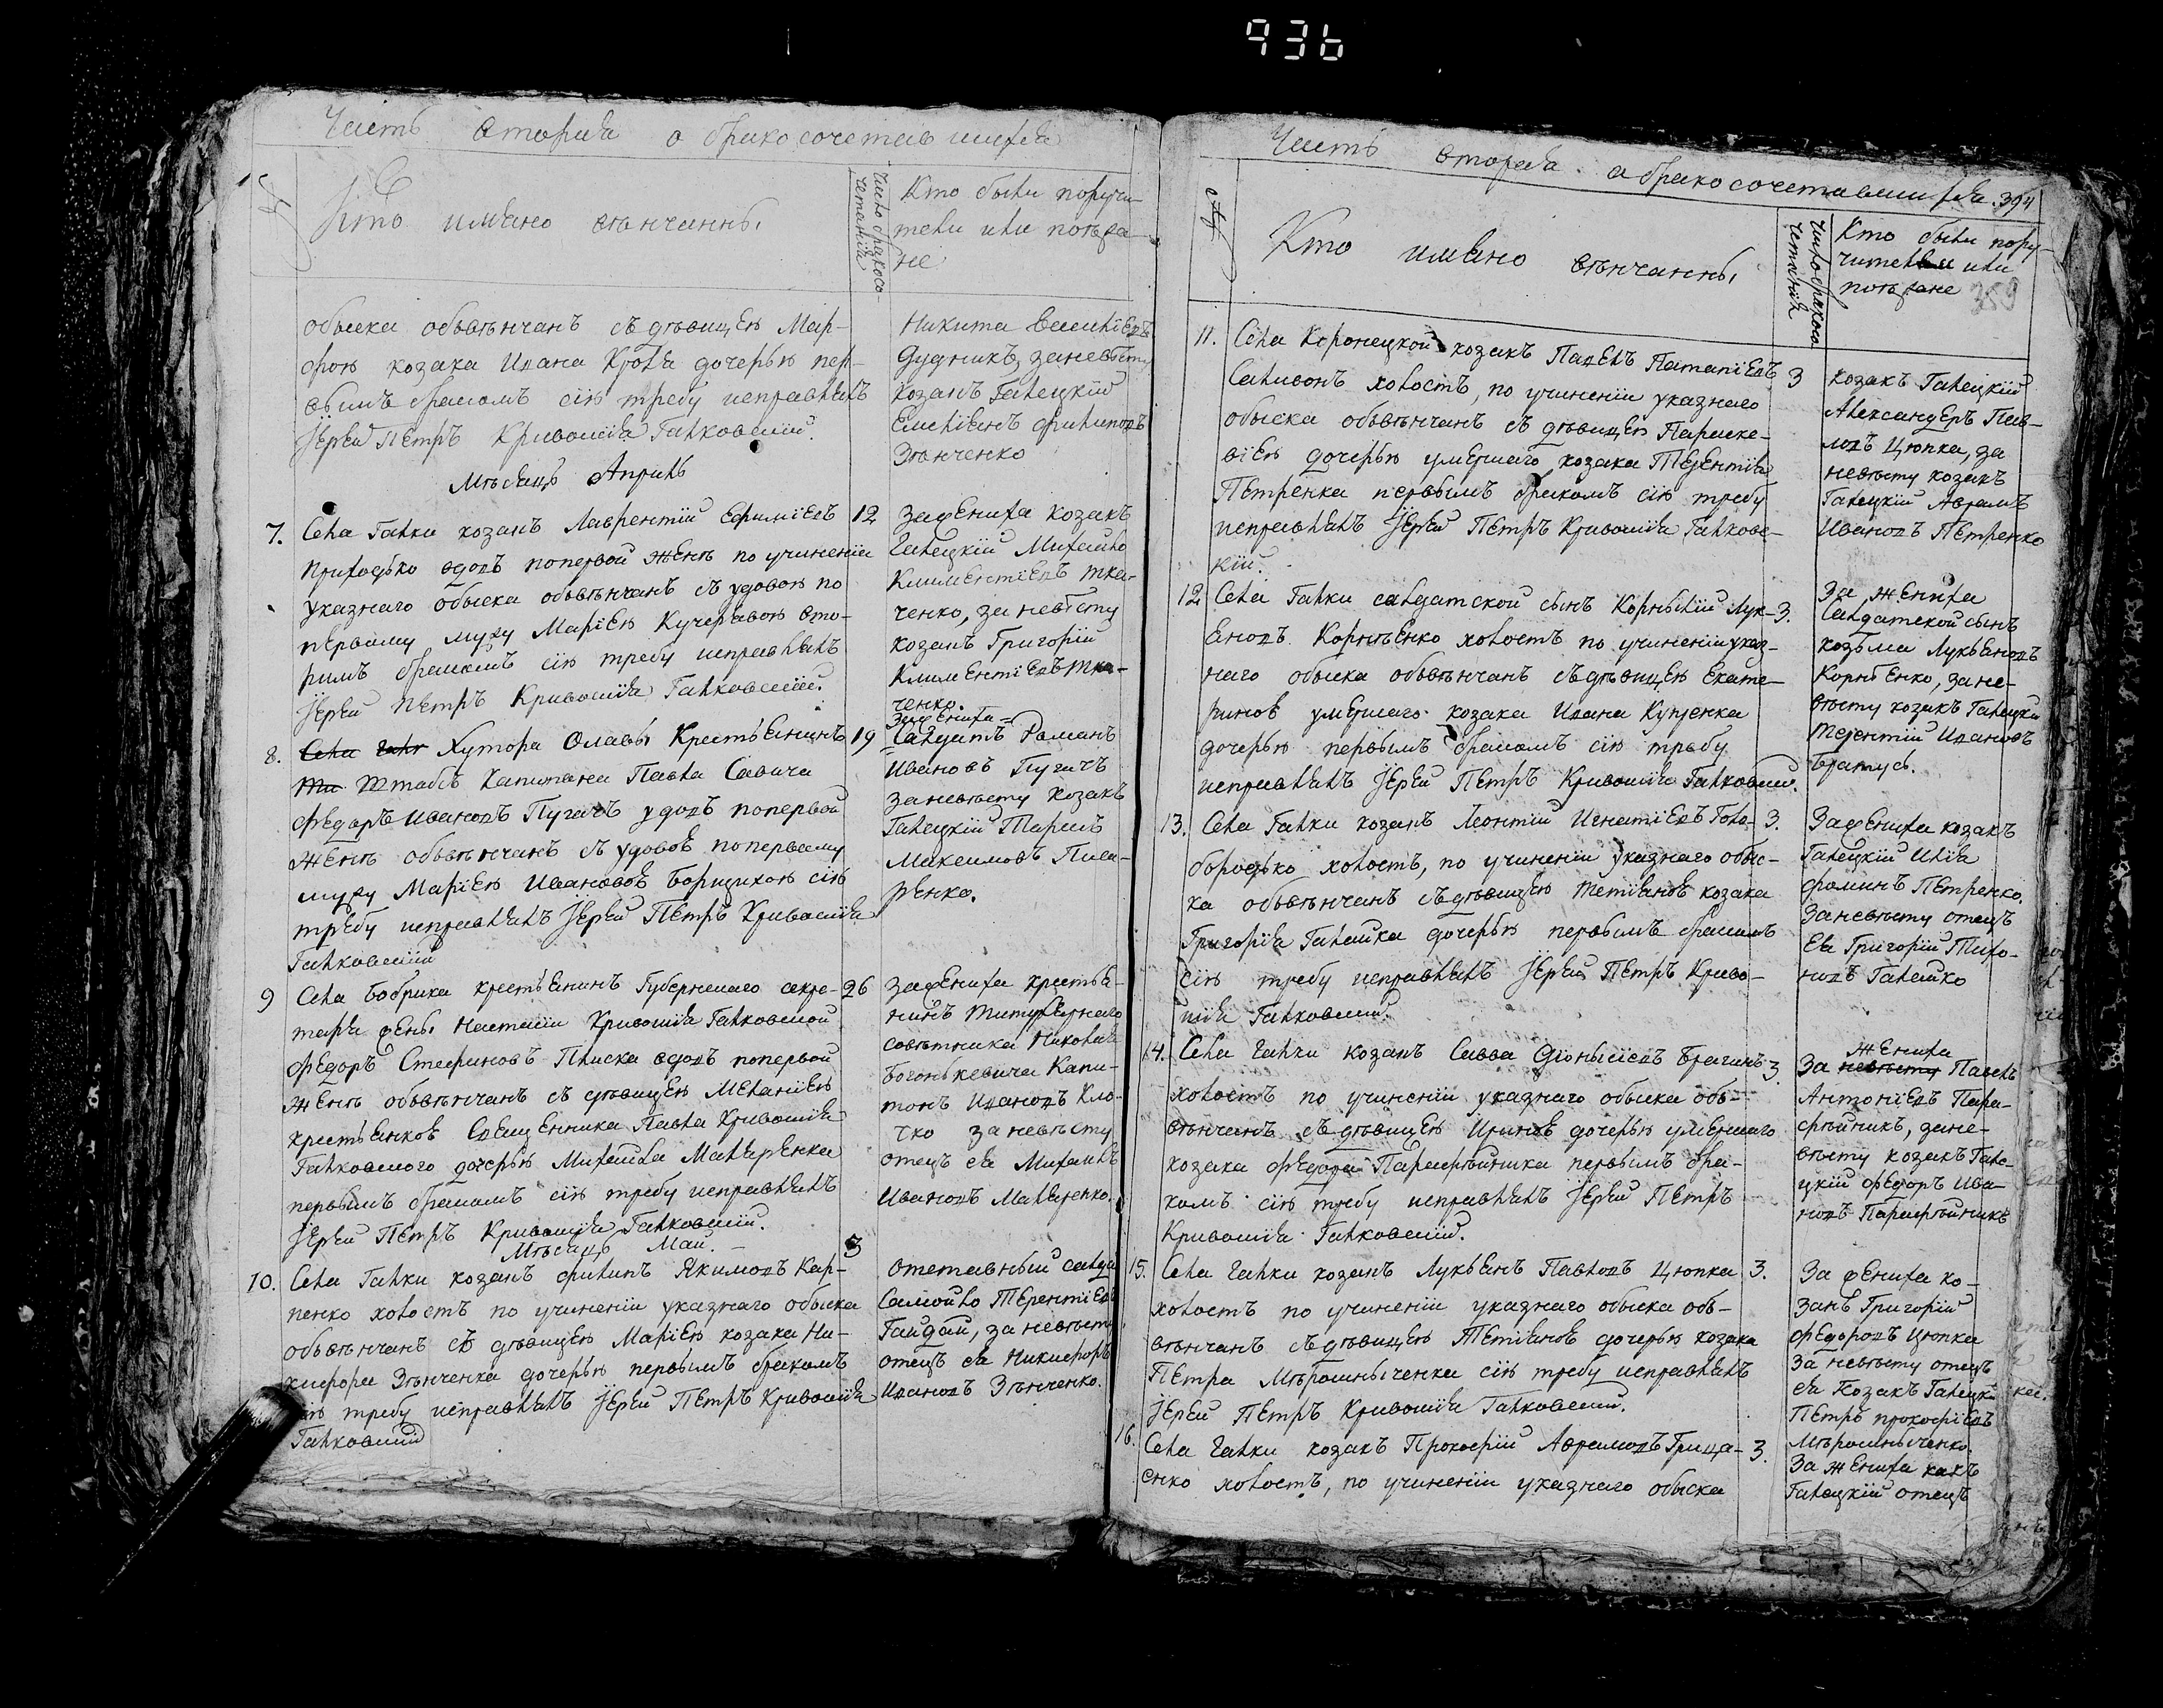 936
Часть вторая о бракосочетавшихся
№
Кто имѣно вѣнчанны
Число бракосо-
четаній
Кто были поручи-
тели или поѣзжа-
не
обыска обвѣнчанъ съ дѣвицею Мар-
фою козака Ивана дочерью пер-
вымъ бракомъ сію требу исправлялъ
Іерей Петръ Кривошія Галковскій.
Никита
Дудникъ, за невѣсту
козакъ Галецкій
Емеліянъ Филиповъ
Зѣнченко
Мѣсяцъ Априль
7.
Села Галки козакъ Лаврентій Ефиміевъ
Приходько вдовъ попервой женѣ по учиненіи
указнаго обыска обвѣнчанъ съ удовою по
первому мужу Маріею Кучеравою вто-
римъ бракомъ сію требу исправлялъ
Іерей Петръ Кривошія Галковскій.
12
За жениха козакъ
Галецкій Михайло
Климентіевъ Тка-
ченко, за невѣсту
козакъ Григорій
Климентіевъ Тка-
ченко.
8.
Села Хутора Олавы Крестьянинъ
Штабсъ Капитана Павла Савича
Федоръ Ивановъ Пугачъ удовъ попервой
женѣ обвѣнчанъ съ удовою попервому
мужу Маріею Ивановою Борщихою сію
требу исправлялъ Іерей Петръ Кривошія
Галковскій
19
За жениха
Салдатъ Романъ
Ивановъ Пугачъ
за невѣсту козакъ
Галецкій Тарасъ
Максимовъ Писа-
ренко.
9
Села Бобрика крестьянинъ Губернскаго секре-
таря жены Настасіи Кривошія Галковской
Федоръ Стефановъ Плиска вдовъ попервой
женѣ обвѣнчанъ съ дѣвицею Меланіею
крестьянкою Священника Павла Кривошія
Галковского дочерью Михайла Маляренка
первымъ бракомъ сію требу исправлялъ
Іерей Петръ Кривошія Галковскій.
26
За жениха крестья-
нинъ Титулярнаго
совѣтника Николая
Капи-
тонъ Ивановъ Кло-
чко за невѣсту
отецъ ея Михаилъ
Ивановъ Маляренко.
Мѣсяцъ Май.
10.
Села Галки козакъ Филипъ Якимовъ Кар-
пенко холостъ по учиненіи указнаго обыска
обвѣнчанъ съ дѣвицею Маріею козака Ни-
кифора Зѣнченка дочерью первымъ бракомъ
сію требу исправлялъ Іерей Петръ Кривошія
Галковскій
3
Отставный салдатъ
Самойло Терентіевъ
Гайдай, за невѣсту
отецъ ея Никифоръ
Ивановъ Зѣнченко.
Часть вторая о бракосочетавшихся. 394
№
Кто имѣно вѣнчанны
Число бракосо-
четаній
Кто были пору-
чители или
поѣзжане 359
11.
Села Коронецкой козакъ Павелъ Патапіевъ
Саливонъ холостъ, по учиненіи указнаго
обыска обвѣнчанъ съ дѣвицею Параске-
віею дочерью умершаго козака Терентія
Петренка первымъ бракомъ сію требу
исправлялъ Іерей Петръ Кривошія Галковс-
кій.
3
козакъ Галецкій
Александеръ Пав-
ловъ Цюпка, за
невѣсту козакъ
Галецкій Аврамъ
Ивановъ Петренко
12
Села Галки салдатской сынъ Корнилій Лук-
яновъ Корнѣенко холостъ по учиненіи указ-
наго обыска обвѣнчанъ съ дѣвицею Екате-
риною умершаго козака Ивана
дочерью первымъ бракомъ сію требу
исправлялъ Іерей Петръ Кривошія Галковскій.
3.
За жениха
Салдатской сынъ
Козьма Лукьяновъ
Корнѣенко, за не-
вѣсту козакъ Галецкій
Терентій Ивановъ
Братусь.
13.
Села Галки козакъ Леонтій Игнатіевъ Голо-
бородько холостъ, по учиненіи указнаго обыс-
ка обвѣнчанъ съ дѣвицею Тетіаною козака
Григорія Галайка дочерью первымъ бракомъ
сію требу исправлялъ Іерей Петръ Криво-
шія Галковскій.
3.
За жениха козакъ
Галецкій Илія
Фоминъ Петренко,
за невѣсту отецъ
ея Григорій Тихо-
новъ Галайко
14.
Села Галки козакъ Савва Діонысіевъ Брагинъ
холостъ по учиненіи указнаго обыска обв-
вѣнчанъ съ дѣвицею Ириною дочерью умершаго
козака Федора Парафѣйника первымъ бра-
комъ сію требу исправлялъ Іерей Петръ
Кривошія Галковскій.
3.
жениха
За невѣсту Павелъ
Антоніевъ Пара-
фѣйникъ, за не-
вѣсту козакъ Гале-
цкій Федоръ Ива-
новъ Парафѣйникъ
15.
Села Галки козакъ Лукьянъ Павловъ Цюпка
холостъ по учиненіи указнаго обыска обв-
вѣнчанъ съ дѣвицею Тетіаною дочерью козака
Петра Мѣрошныченка сію требу исправлялъ
Іерей Петръ Кривошія Галковскій.
3.
За жениха ко-
закъ Григорій
Федоровъ Цюпка
За невѣсту отецъ
ея Козакъ Галецкій
Петръ Прокофіевъ
Мѣрошныченко.
16.
Села Галки козакъ Прокофій Аврамовъ Грица-
енко холостъ, по учиненіи указнаго обыска
3.
За жениха какъ
Галецкій отецъ